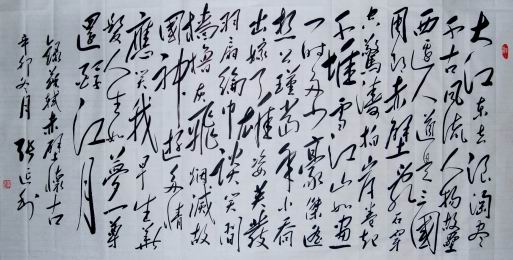 大江东去浪淘尽
千古风流人物故垒
西边人道是三國
周郎赤壁乱石穿
空驚涛拍岸卷起
千堆雪江山如画
一时多少豪傑遥
想公瑾当年小乔
出嫁了雄姿英发
羽扇纶巾谈笑间
樯橹灰飞烟灭故
國神游多情
应笑我早生华
髮人生如梦一尊
還酹江月
録苏轼赤壁懷古
辛卯冬月 张